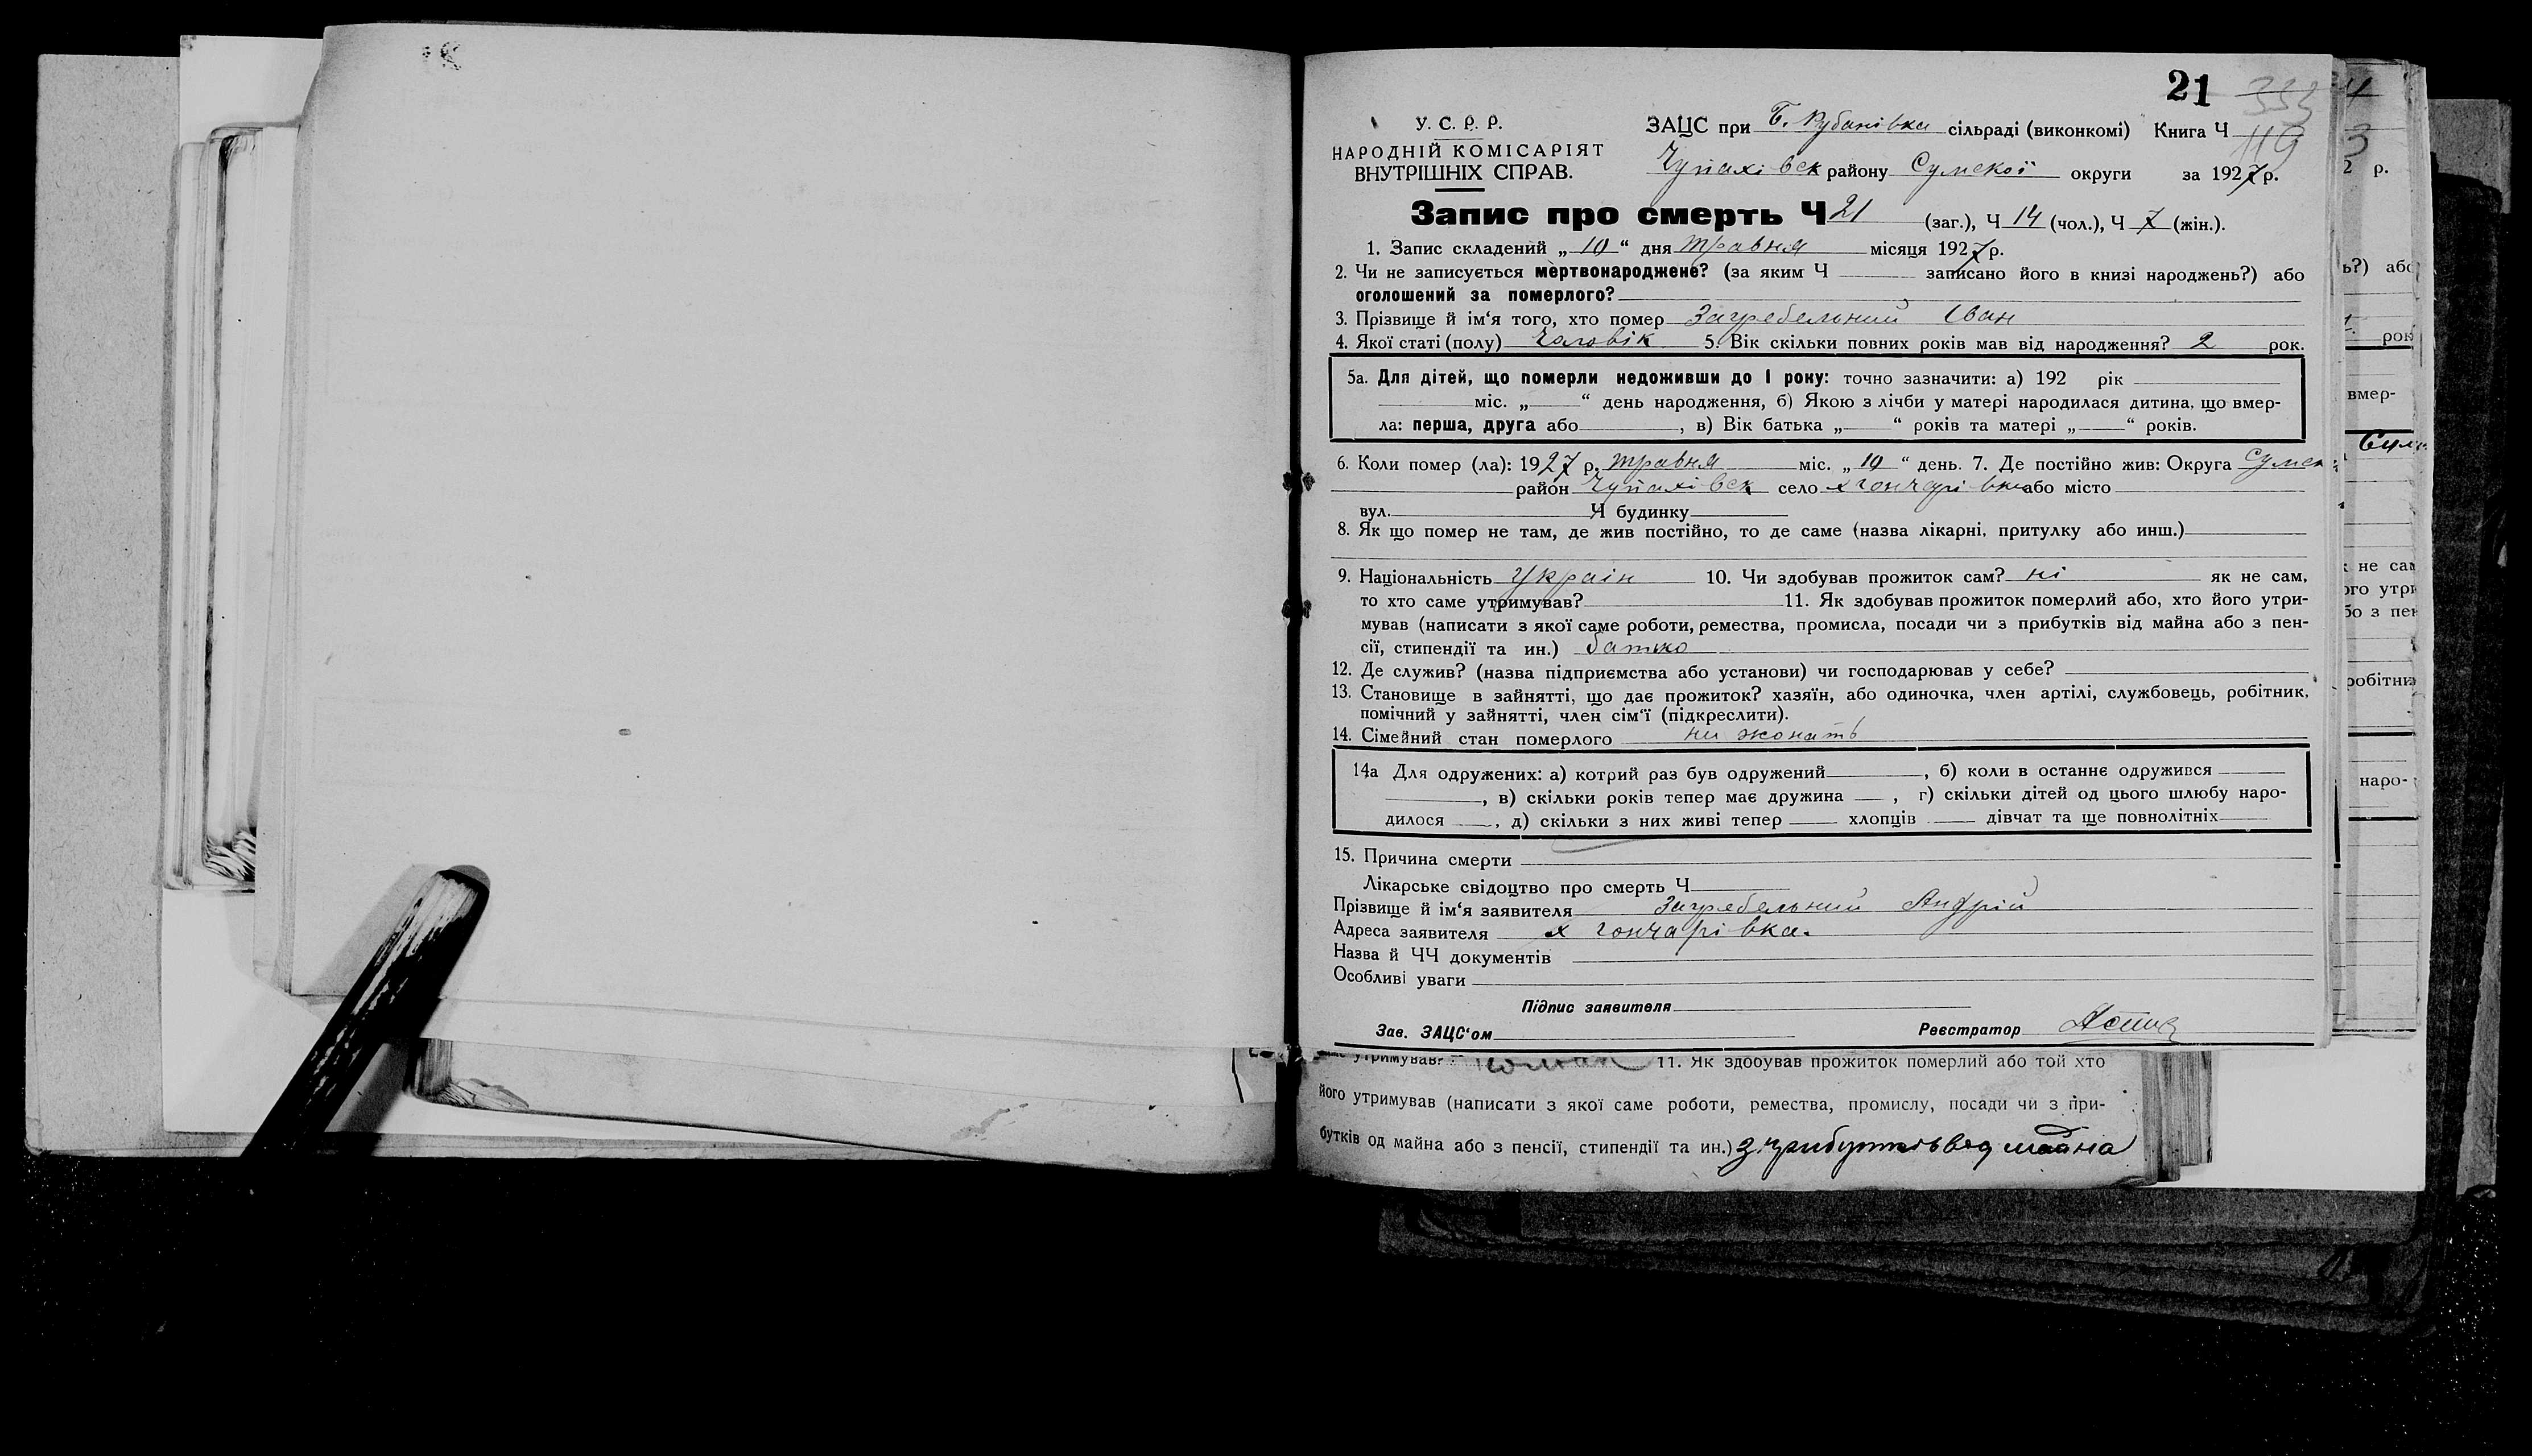 21
У. С. Р. Р.
НАРОДНІЙ КОМІСАРІЯТ
ВНУТРІШНІХ СПРАВ.
ЗАЦС при Б. Рубанівка сільраді (виконкомі) Книга Ч 119
Чупахівськ району Сумскої округи за 1927 р.
Запис про смерть Ч 21 (заг.), Ч 14 (чол.), Ч 7 (жін.).
1. Запис складений „ 10 “ дня травня місяця 1927 р.
2. Чи не записується мертвонароджене? (за яким Ч записано його в книзі народжень?) або
оголошений за померлого?
3. Прізвище й ім‘я того, хто помер Загребельний Іван
4. Якої статі (полу) чаловік 5. Вік скільки повних років мав від народження? 2 рок.
5а. Для дітей, що померли недоживши до 1 року: точно зазначити: а) 192 рік
міс. „ “ день народження, б) Якою з лічби у матері народилася дитина, що вмер-
ла: перша, друга або , в) Вік батька „ “ років та матері „ “ років.
6. Коли помер (ла): 1927 р. травня міс. „ 10 “ день. 7. Де постійно жив: Округа Сумск
район Чупахівск село х гончарівка або місто
вул. Ч будинку
8. Як що помер не там, де жив постійно, то де саме (назва лікарні, притулку або инш.)
9. Національність Україн 10. Чи здобував прожиток сам? ні як не сам,
то хто саме утримував? 11. Як здобував прожиток померлий або, хто його утри-
мував (написати з якої саме роботи, ремества, промисла, посади чи з прибутків від майна або з пен-
сії, стипендії та ин.) батько
12. Де служив? (назва підприємства або установи) чи господарював у себе?
13. Становище в зайнятті, що дає прожиток? хазяїн, або одиночка, член артілі, службовець, робітник,
помічний у зайнятті, член сім‘ї (підкреслити).
14. Сімейний стан померлого ни жонать
14а Для одружених: а) котрий раз був одружений , б) коли в останнє одружився
, в) скільки років тепер має дружина , г) скільки дітей од цього шлюбу наро-
дилося , д) скільки з них живі тепер хлопців дівчат та ще повнолітніх
15. Причина смерти
Лікарське свідоцтво про смерть Ч
Прізвище й ім‘я заявителя Загребельний Андрій
Адреса заявителя х гончарівка.
Назва й ЧЧ документів
Особливі уваги
Підпис заявителя
Зав. ЗАЦС‘ом Реєстратор
утримував? 11. Як здобував прожиток померлий або той хто
його утримував (написати з якої саме роботи, ремества, промислу, посади чи з при-
бутків од майна або з пенсії, стипендії та ин.) з прибутків від майна
3
2 р.
ь?) або
рок
вмер-
к не сам
ого утри
бо з пен
робітник
наро-